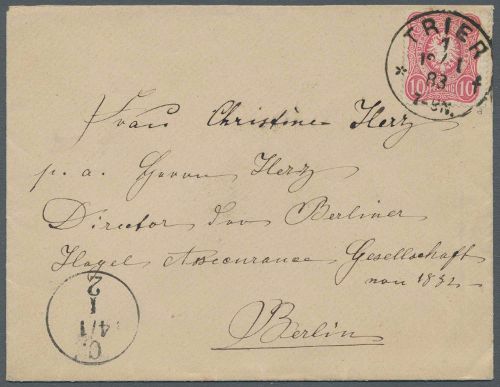 TRIER
7
12/1
83
7-8N.
10 PFENNIG 10
Frau Christine Herz
p. a. Herrn Herz
Director der Berliner
Hagel Assecuranz Gesellschaft
von 1832
Berlin
C.
14/1
1
2